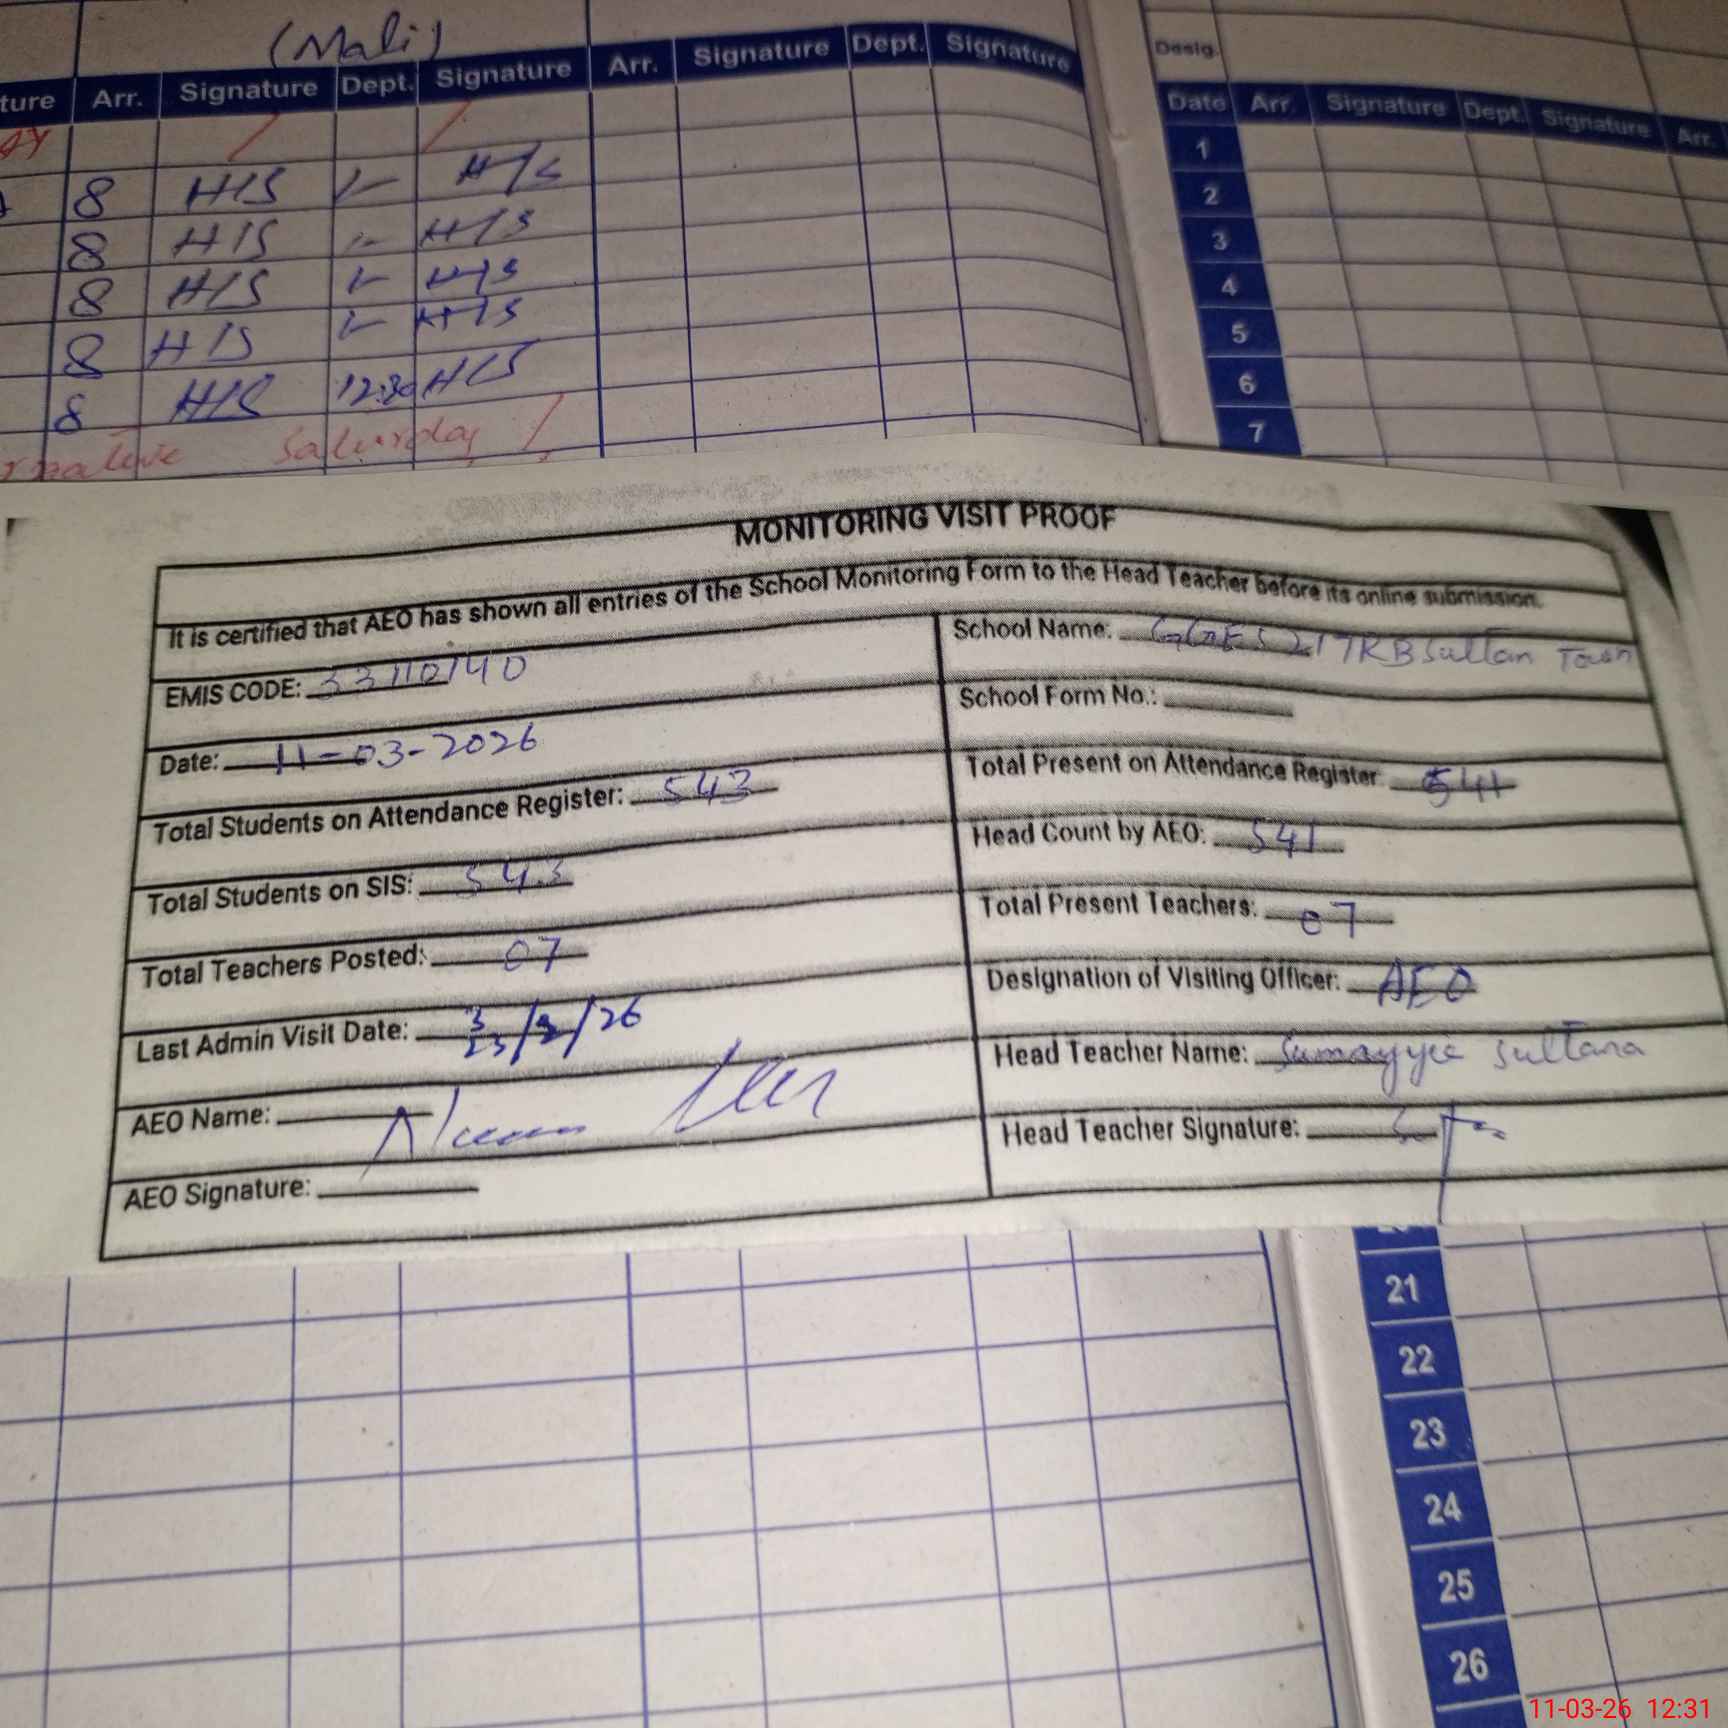 (Mali)
Arr. Signature Dept. Signature Arr. Signature Dept. Signature
8 HIS 1- HIS
8 HIS 1- HIS
8 HIS 1- HIS
8 HIS 1- HIS
8 HIS 12:30 HIS
Saturday
Desig.
Date Arr. Signature Dept. Signature Arr.
1
2
3
4
5
6
7
MONITORING VISIT PROOF
It is certified that AEO has shown all entries of the School Monitoring Form to the Head Teacher before its online submission.
EMIS CODE: 33110140
School Name: GGES 217RB Sultan Town
Date: 11-03-2026
School Form No.:
Total Students on Attendance Register: 543
Total Present on Attendance Register: 541
Total Students on SIS: 543
Head Count by AEO: 541
Total Teachers Posted: 07
Total Present Teachers: 07
Last Admin Visit Date: /26
Designation of Visiting Officer: AEO
AEO Name:
Head Teacher Name: Sumayye Sultana
AEO Signature:
Head Teacher Signature:
21
22
23
24
25
26
11-03-26 12:31